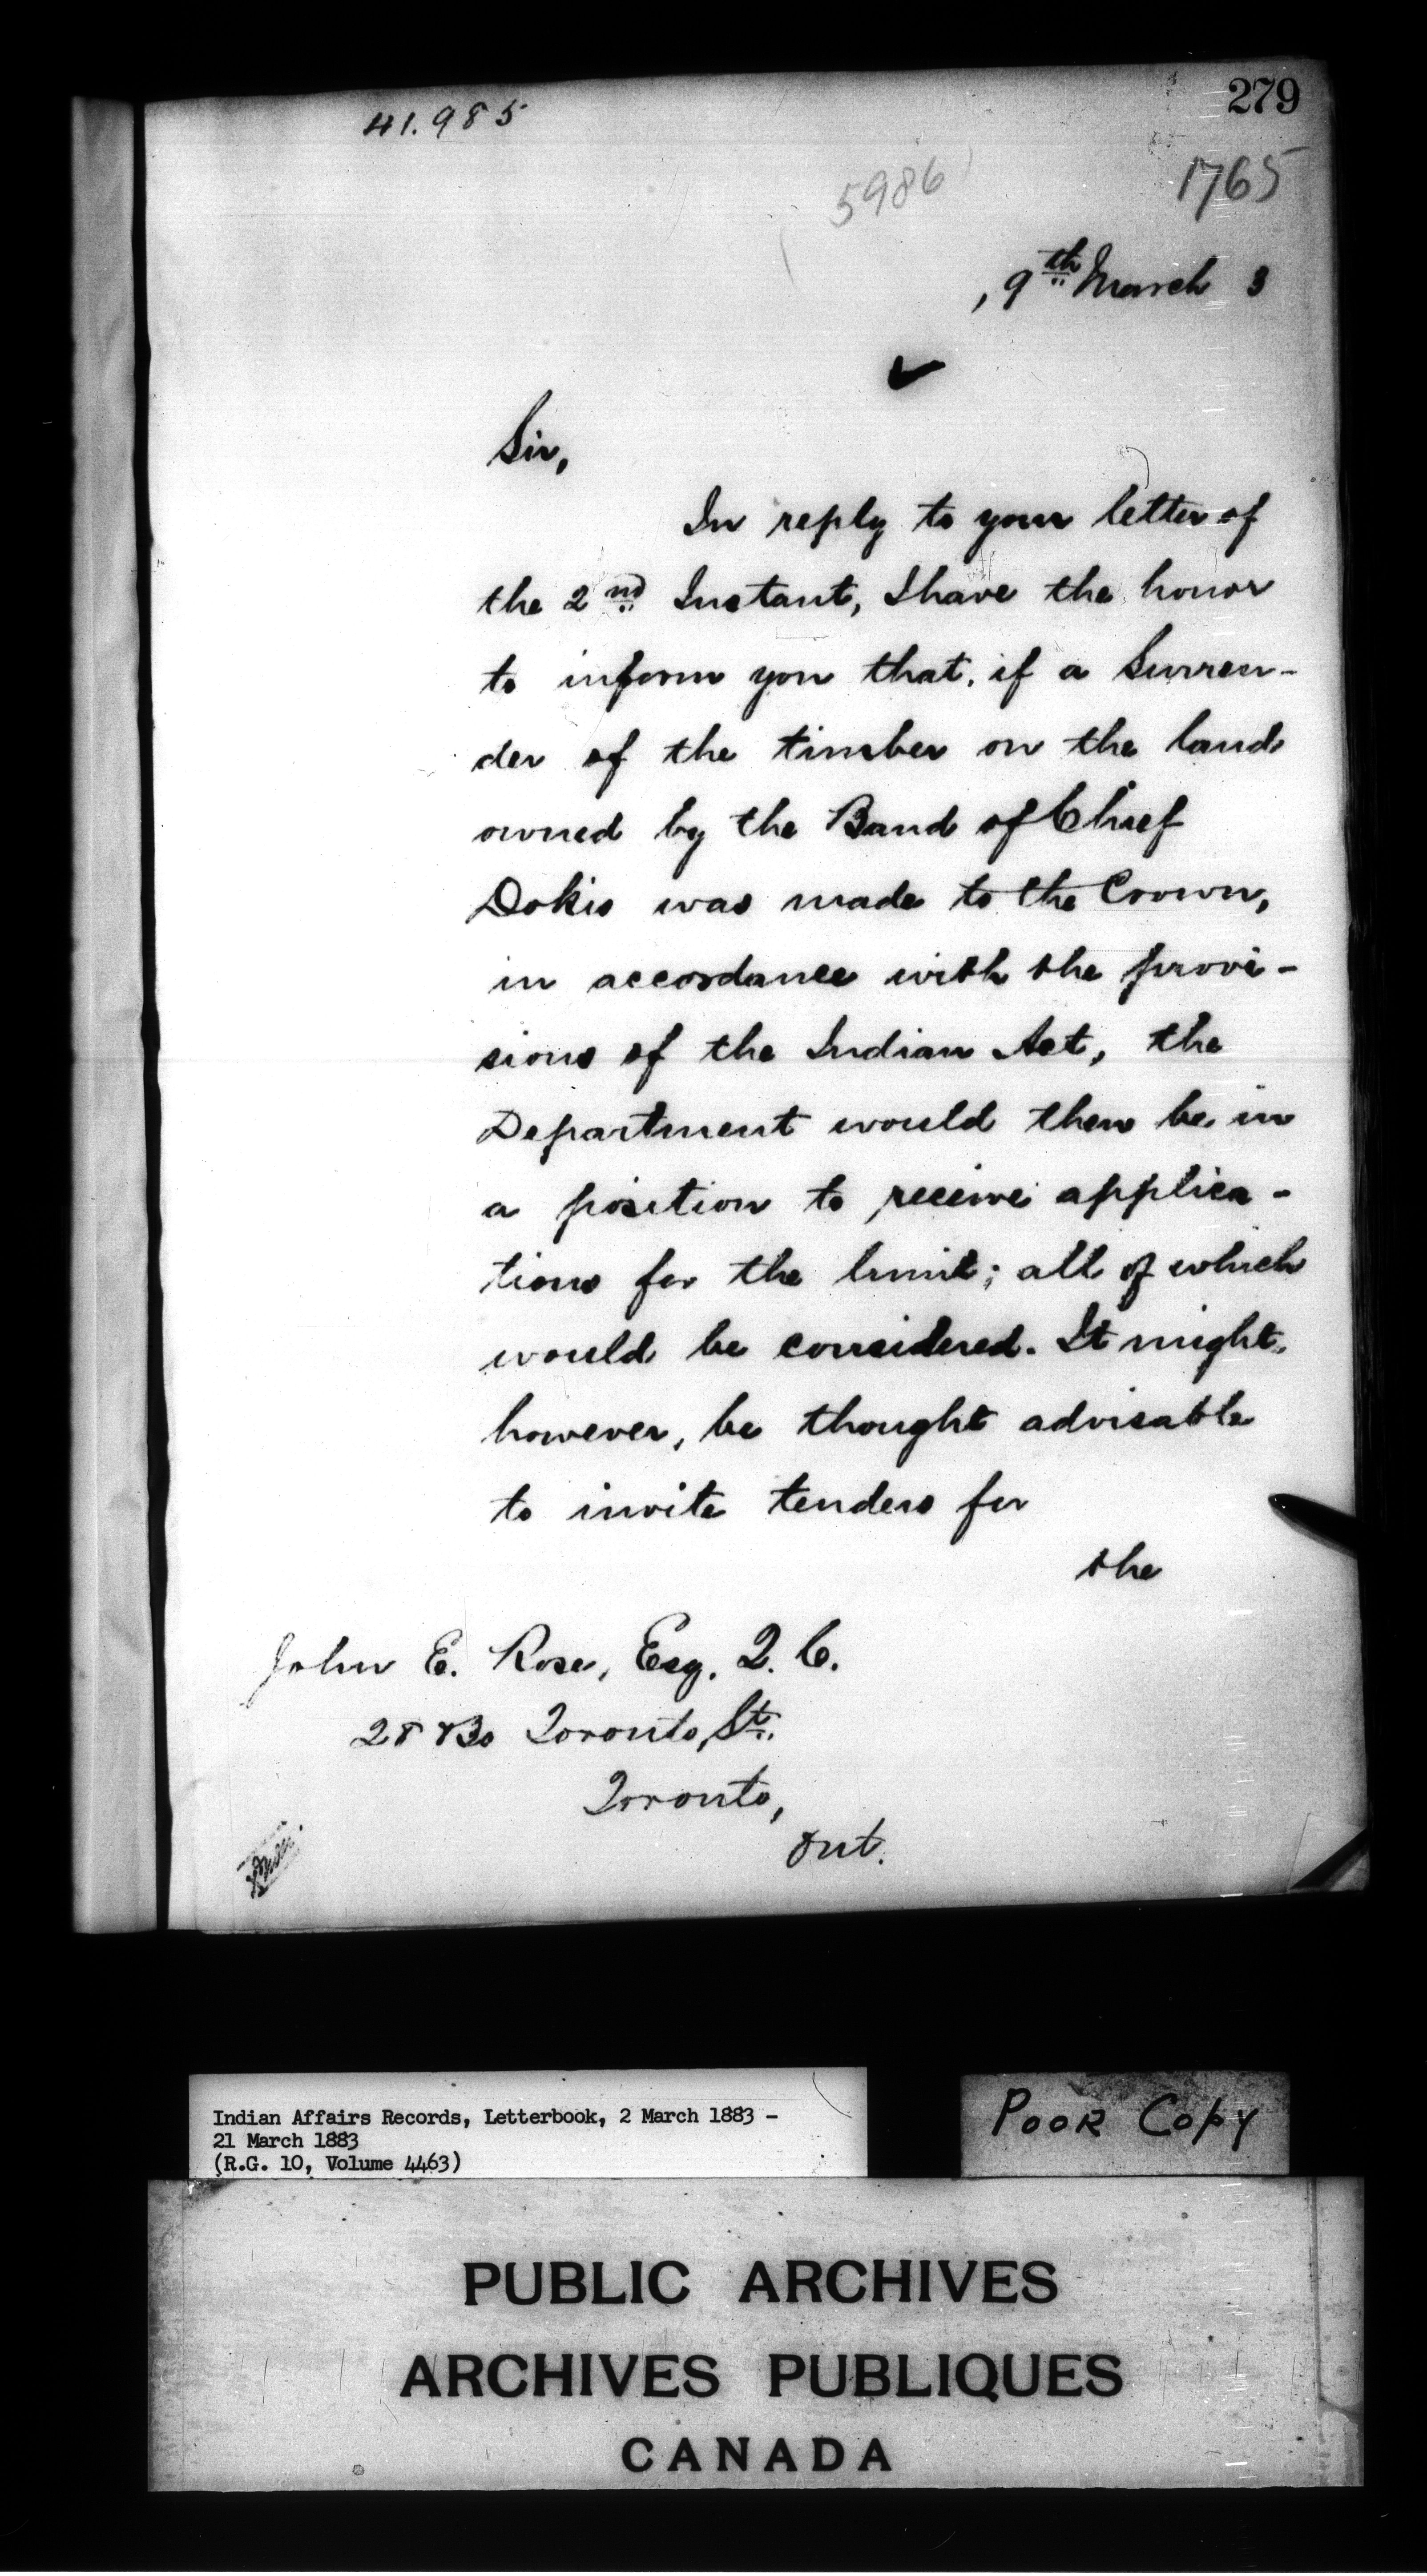 279
41.985
5986
1765
, 9th March 3
Sir,
In reply to your letter of
the 2nd Instant, I have the honor
to inform you that, if a Surren-
der of the timber on the land
owned by the Band of Chief
Dokis was made to the Crown,
in accordance with the provi-
sions of the Indian Act, the
Department would then be in
a position to receive applica-
tions for the limit; all of which
would be considered. It might,
however, be thought advisable
to invite tenders for
the
John E. Rose, Esq. Q. C.
28 & 30 Toronto St.
Toronto,
Ont.
Indian Affairs Records, Letterbook, 2 March 1883 -
21 March 1883
(R.G. 10, Volume 4463)
POOR COPY
PUBLIC ARCHIVES
ARCHIVES PUBLIQUES
CANADA